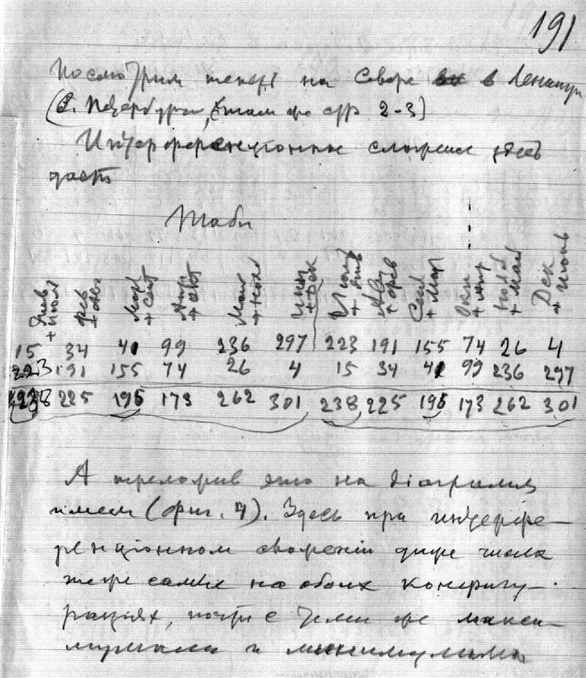 191
Посмотрим теперь на севере в Ленингр
(С. Петербурге, там же стр 2-3)
Интерференционное сложение здесь
даст
Табл
Янв + июл Фев + авг Март + сент Апр + окт Май + ноя Июнь + Дек Июль + Янв Авг + фев Сент + Март Окт + апр Нояб + май Дек + июнь
15 34 41 99 236 297 223 191 155 74 26 4
223 191 155 74 26 4 15 34 41 99 236 297
238 225 196 173 262 301 238 225 196 173 262 301
А переложив это на діаграмму
имеем (фиг. 7). Здесь при интерфе-
ренціонном сложеніи даже числа
теже самые на обоих конфигу-
раціях, почти с теми же макси-
мумами и минимумами